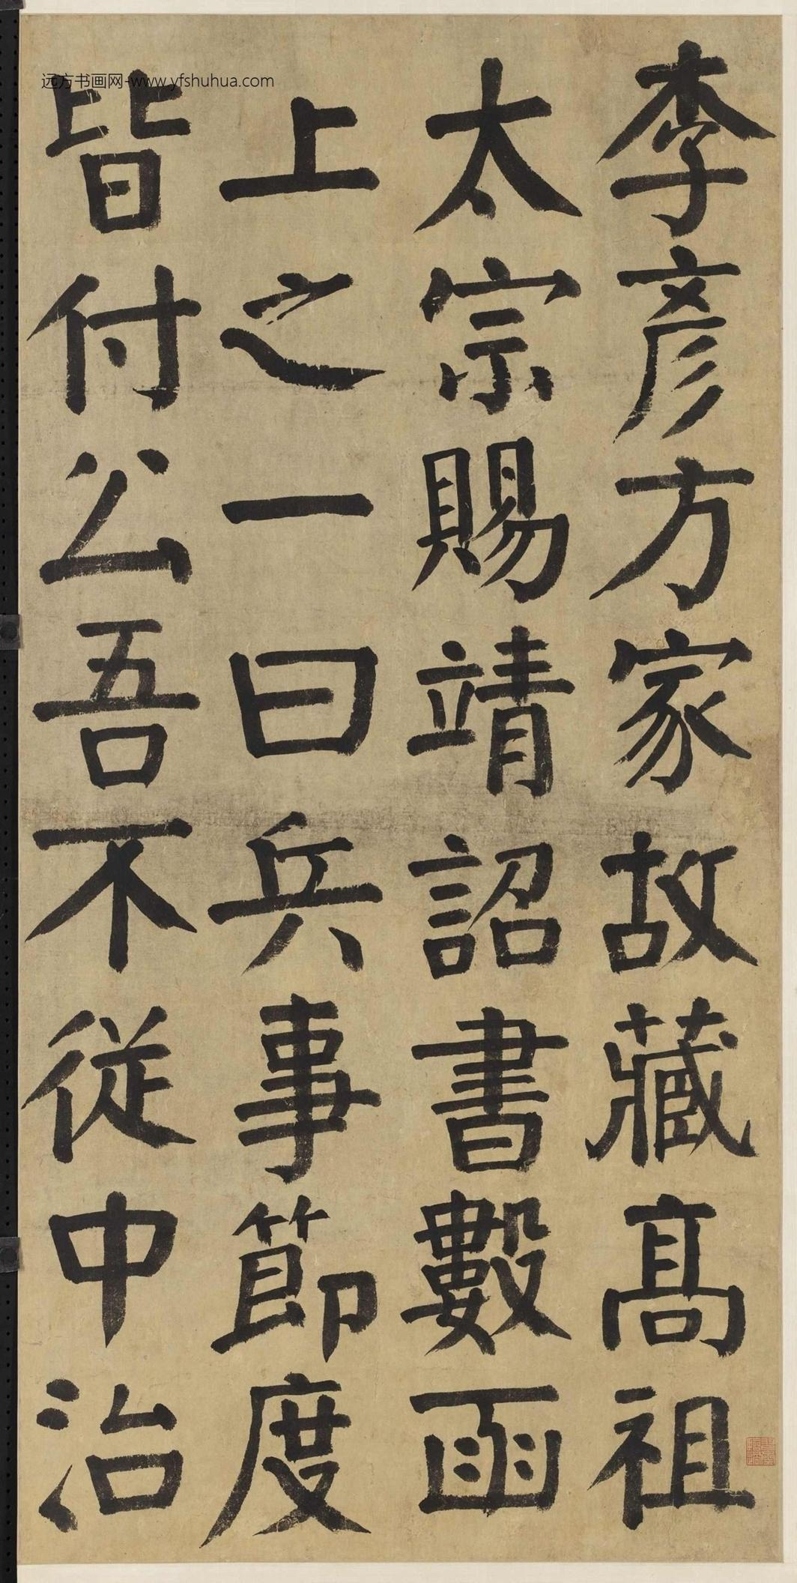 远方书画网-www.yfshuhua.com
李彦方家故藏高祖
太宗賜靖詔書數函
上之一曰兵事節度
皆付公吾不從中治